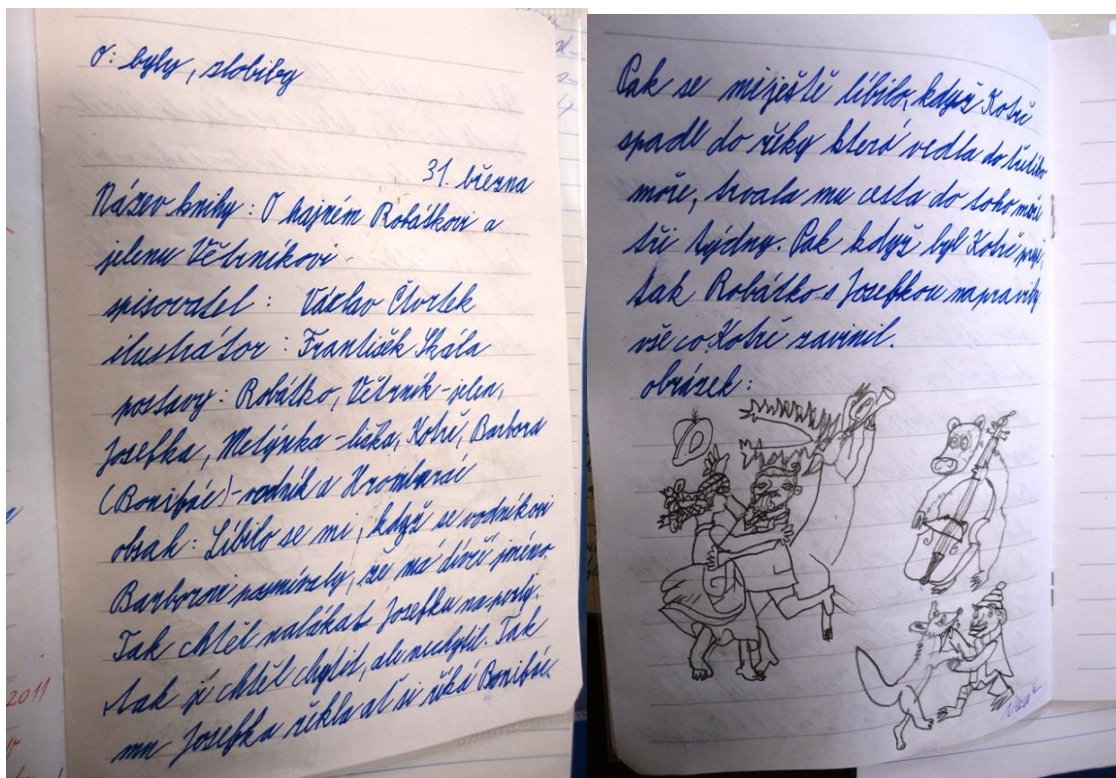 O: byly, zlobily
31. března
Název knihy: O hajném Robátkovi a
jelenu Větrníkovi.
spisovatel: Václav Čtvrtek
ilustrátor: František Skála
postavy: Robátko, Větrník-jelen,
Josefka, Melynka-liška, Kotrč, Barbora
(Bonifác)-vodník a Hromburác
obsah: Líbilo se mi, když se vodníkovi
Barborovi posmívaly, že má dívčí jméno.
Tak chtěl nalákat Josefku na perly.
tak ji chtěl chytit, ale nechytil. Tak
mu Josefka řekla ať si říká Bonifác
Pak se mi ještě líbilo, když Kotrč
spadl do řeky která vedla do třetího
moře, trvala mu cesta do toho moře
tři týdny. Pak když byl Kotrč pryč,
tak Robátko s Josefkou napravily
vše co Kotrč zavinil.
obrázek:
2011